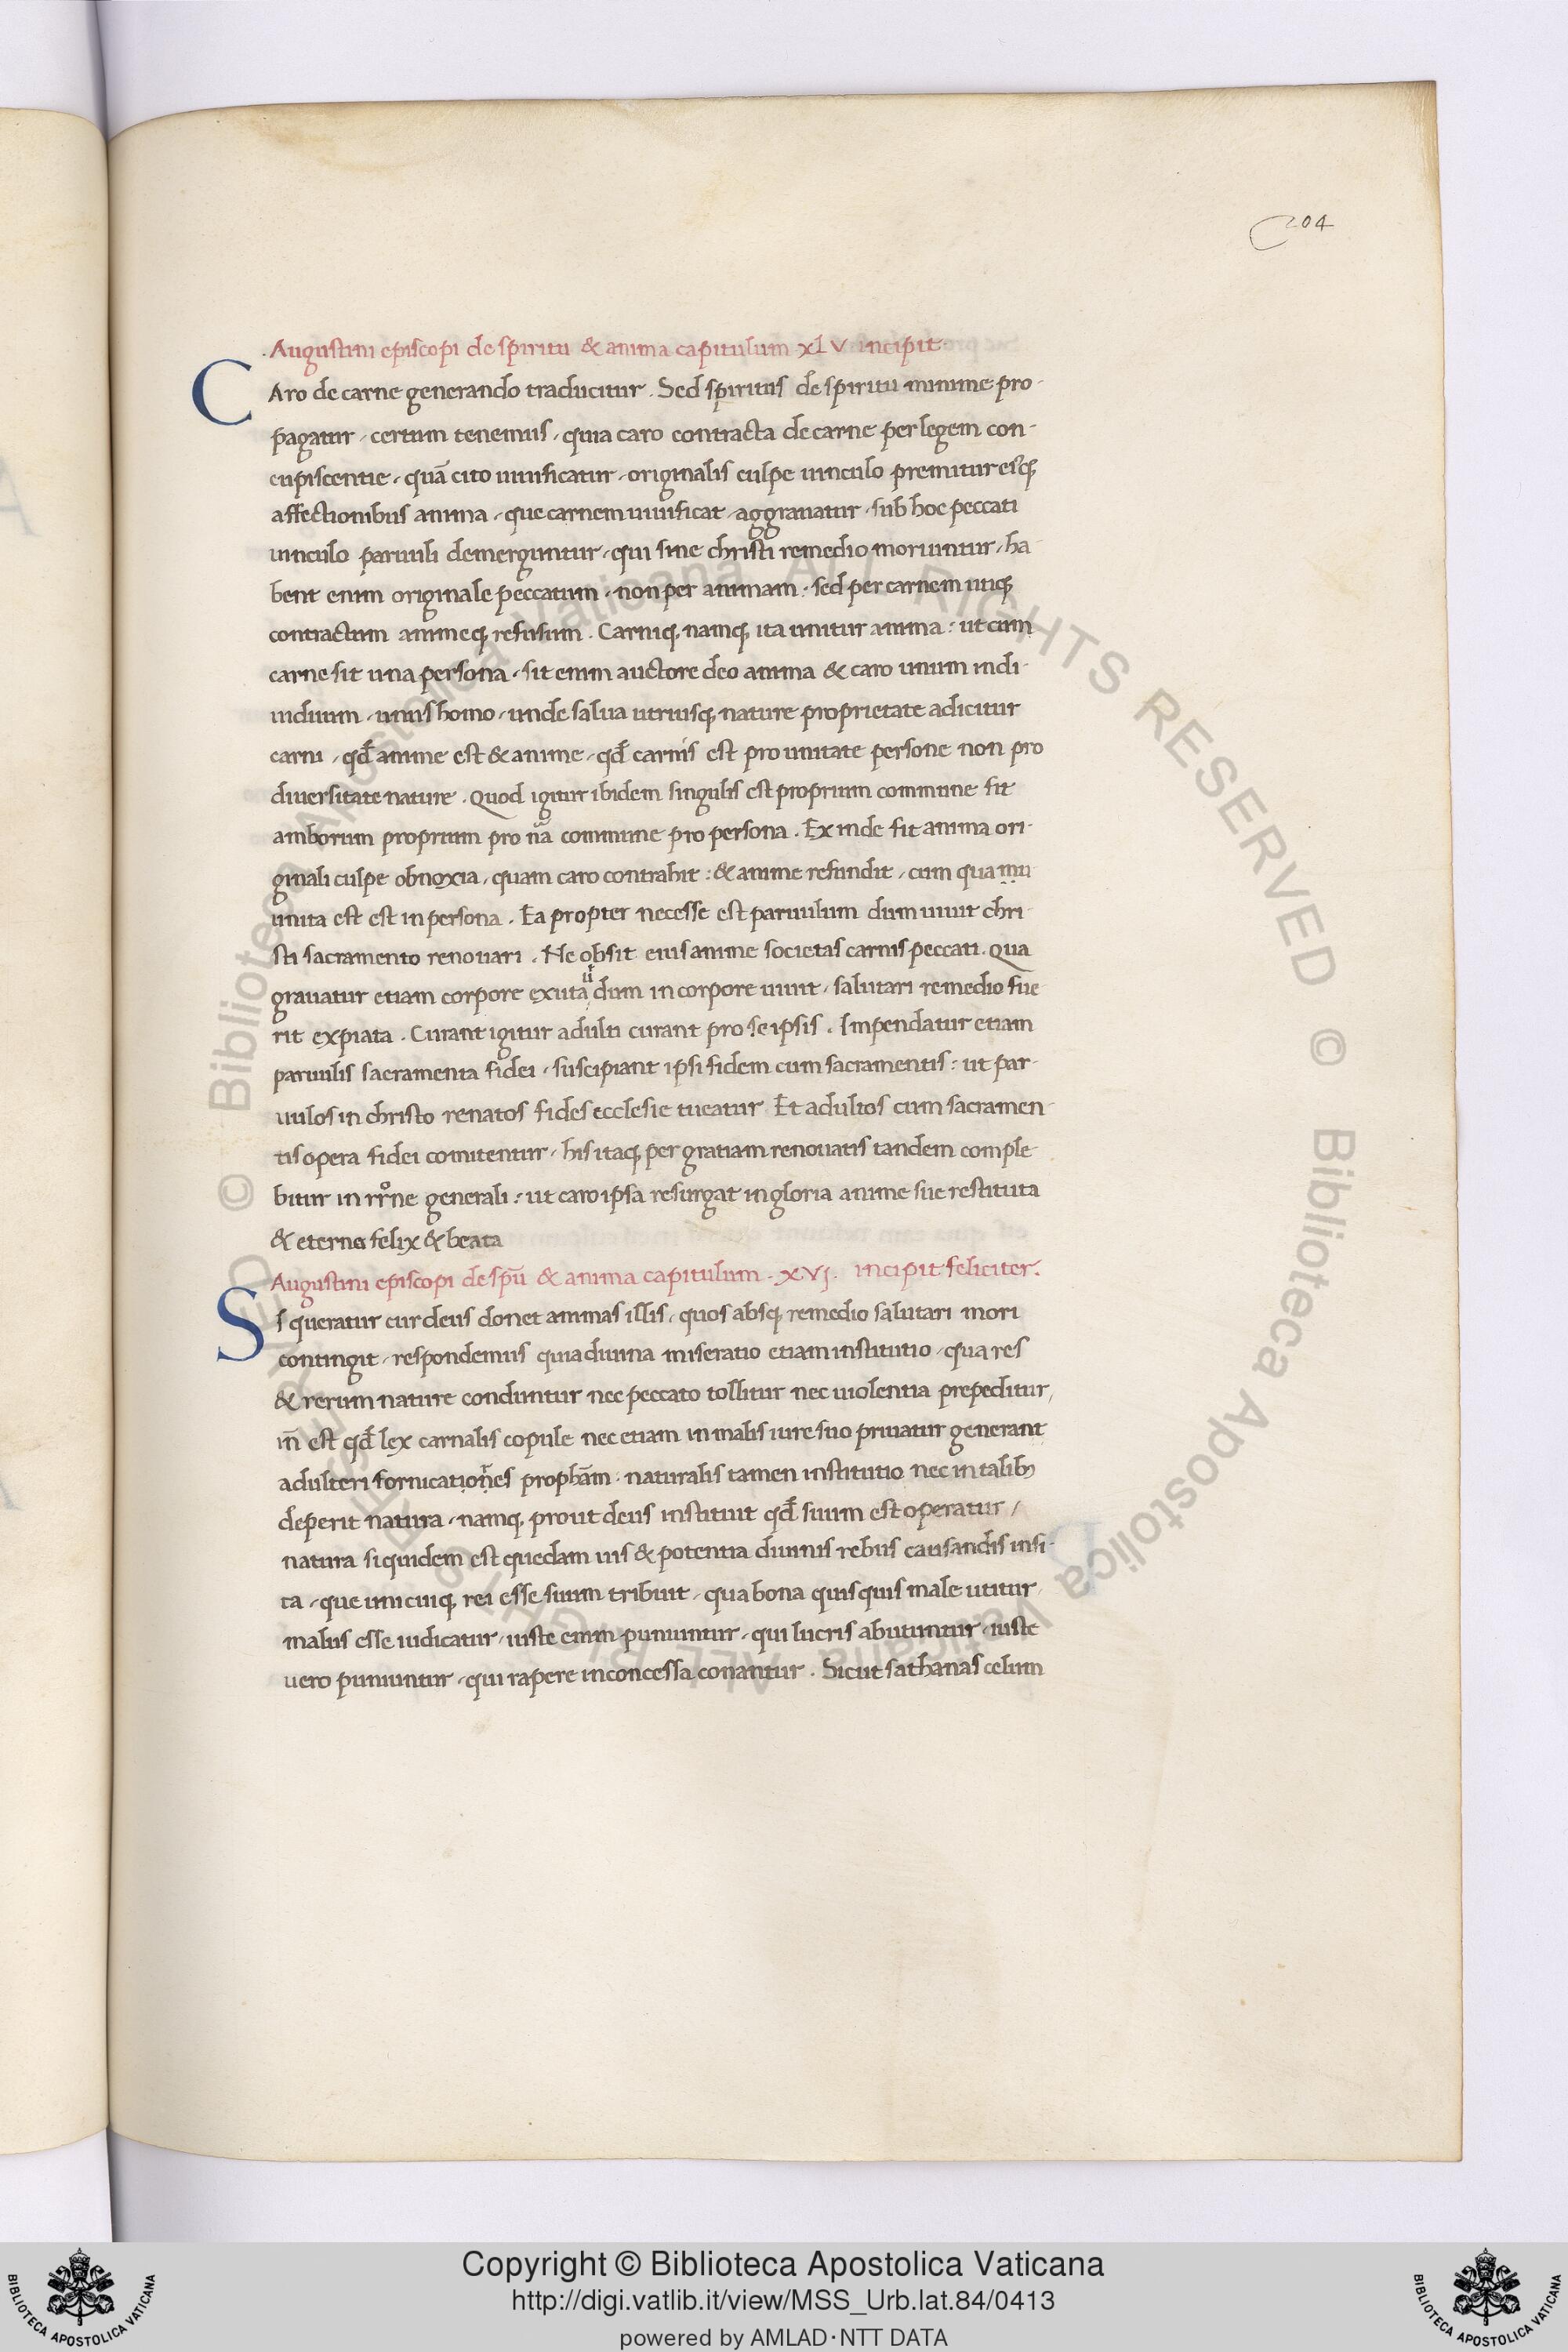 204
.Augustini episcopi de spiritu & anima capitulum XLV incipit.
CAro de carne generando traducitur . Sed spiritus de spiritu minime pro-
pagatur , certum tenemus , quia caro contracta de carne per legem con-
cupiscentie , quā cito uiuificatur , originalis culpe uinculo premitur eiꝰqꝫ
affectionibus anima , que carnem uiuificat , aggrauatur , sub hoc peccati
uinculo paruuli demerguntur , qui sine christi remedio moriuntur , ha-
bent enim originale peccatum , non per animam , sed per carnem utiqꝫ
contractum animeqꝫ refusum . Carniqꝫ namqꝫ ita unitur anima : ut cum
carne sit una persona , sit enim auctore deo anima & caro unum indi-
uiduum , unus homo , unde salua utriusqꝫ nature proprietate adicitur
carni , qđ anime est & anime , qđ carnis est pro unitate persone non pro
diuersitate nature . Quod igitur ibidem singulis est proprium commune sit
amborum proprium pro na commune pro persona . Ex inde fit anima ori-
ginali culpe obnoxia , quam caro contrahit : & anime refundit , cum qua mu
unita est est in persona . Ea propter necesse est paruulum dum uiuit chri-
sti sacramento renouari . Ne obsit eius anime societas carnis peccati . Qua
grauatur etiam corpore exuta dum in corpore uiuit , salutari remedio fue
rit expiata . Curant igitur adulti curant pro se ipsis . Impendatur etiam
paruulis sacramenta fidei , suscipiant ipsi fidem cum sacramentis : ut par-
uulos in christo renatos fides ecclesie tueatur Et adultos cum sacramen-
tis opera fidei comitentur , his itaqꝫ per gratiam renouatis tandem comple-
bitur in rr̊ne generali : ut caro ipsa resurgat in gloria anime sue restituta
& eterna felix & beata
Augustini episcopi de spū & anima capitulum . XVI . incipit feliciter.
SI queratur cur deus donet animas illis , quos absqꝫ remedio salutari mori
contingit , respondemus quia diuina miseratio etiam institutio , qua res
& rerum nature conduntur nec peccato tollitur nec uiolentia prepeditur,
iñ est qđ lex carnalis copule nec etiam in malis iure suo priuatur generant
adulteri fornicationes prophām : naturalis tamen institutio nec in talibꝫ
deperit natura , namqꝫ prout deus instituit qđ suum est operatur /
natura siquidem est quedam uis & potentia diuinis rebus causandis insi-
ta , que unicuiqꝫ rei esse suum tribuit , qua bona quisquis male utitur
malus esse iudicatur , iuste enim puniuntur , qui lucris abutuntur , iuste
uero puniuntur , qui rapere inconcessa conantur . Sicut sathanas celum
© Biblioteca Apostolica Vaticana ALL RIGHTS RESERVED © Biblioteca Apostolica Vaticana ALL RIGHTS RESERVED
Copyright © Biblioteca Apostolica Vaticana
http://digi.vatlib.it/view/MSS_Urb.lat.84/0413
powered by AMLAD·NTT DATA
BIBLIOTECA APOSTOLICA VATICANA
BIBLIOTECA APOSTOLICA VATICANA